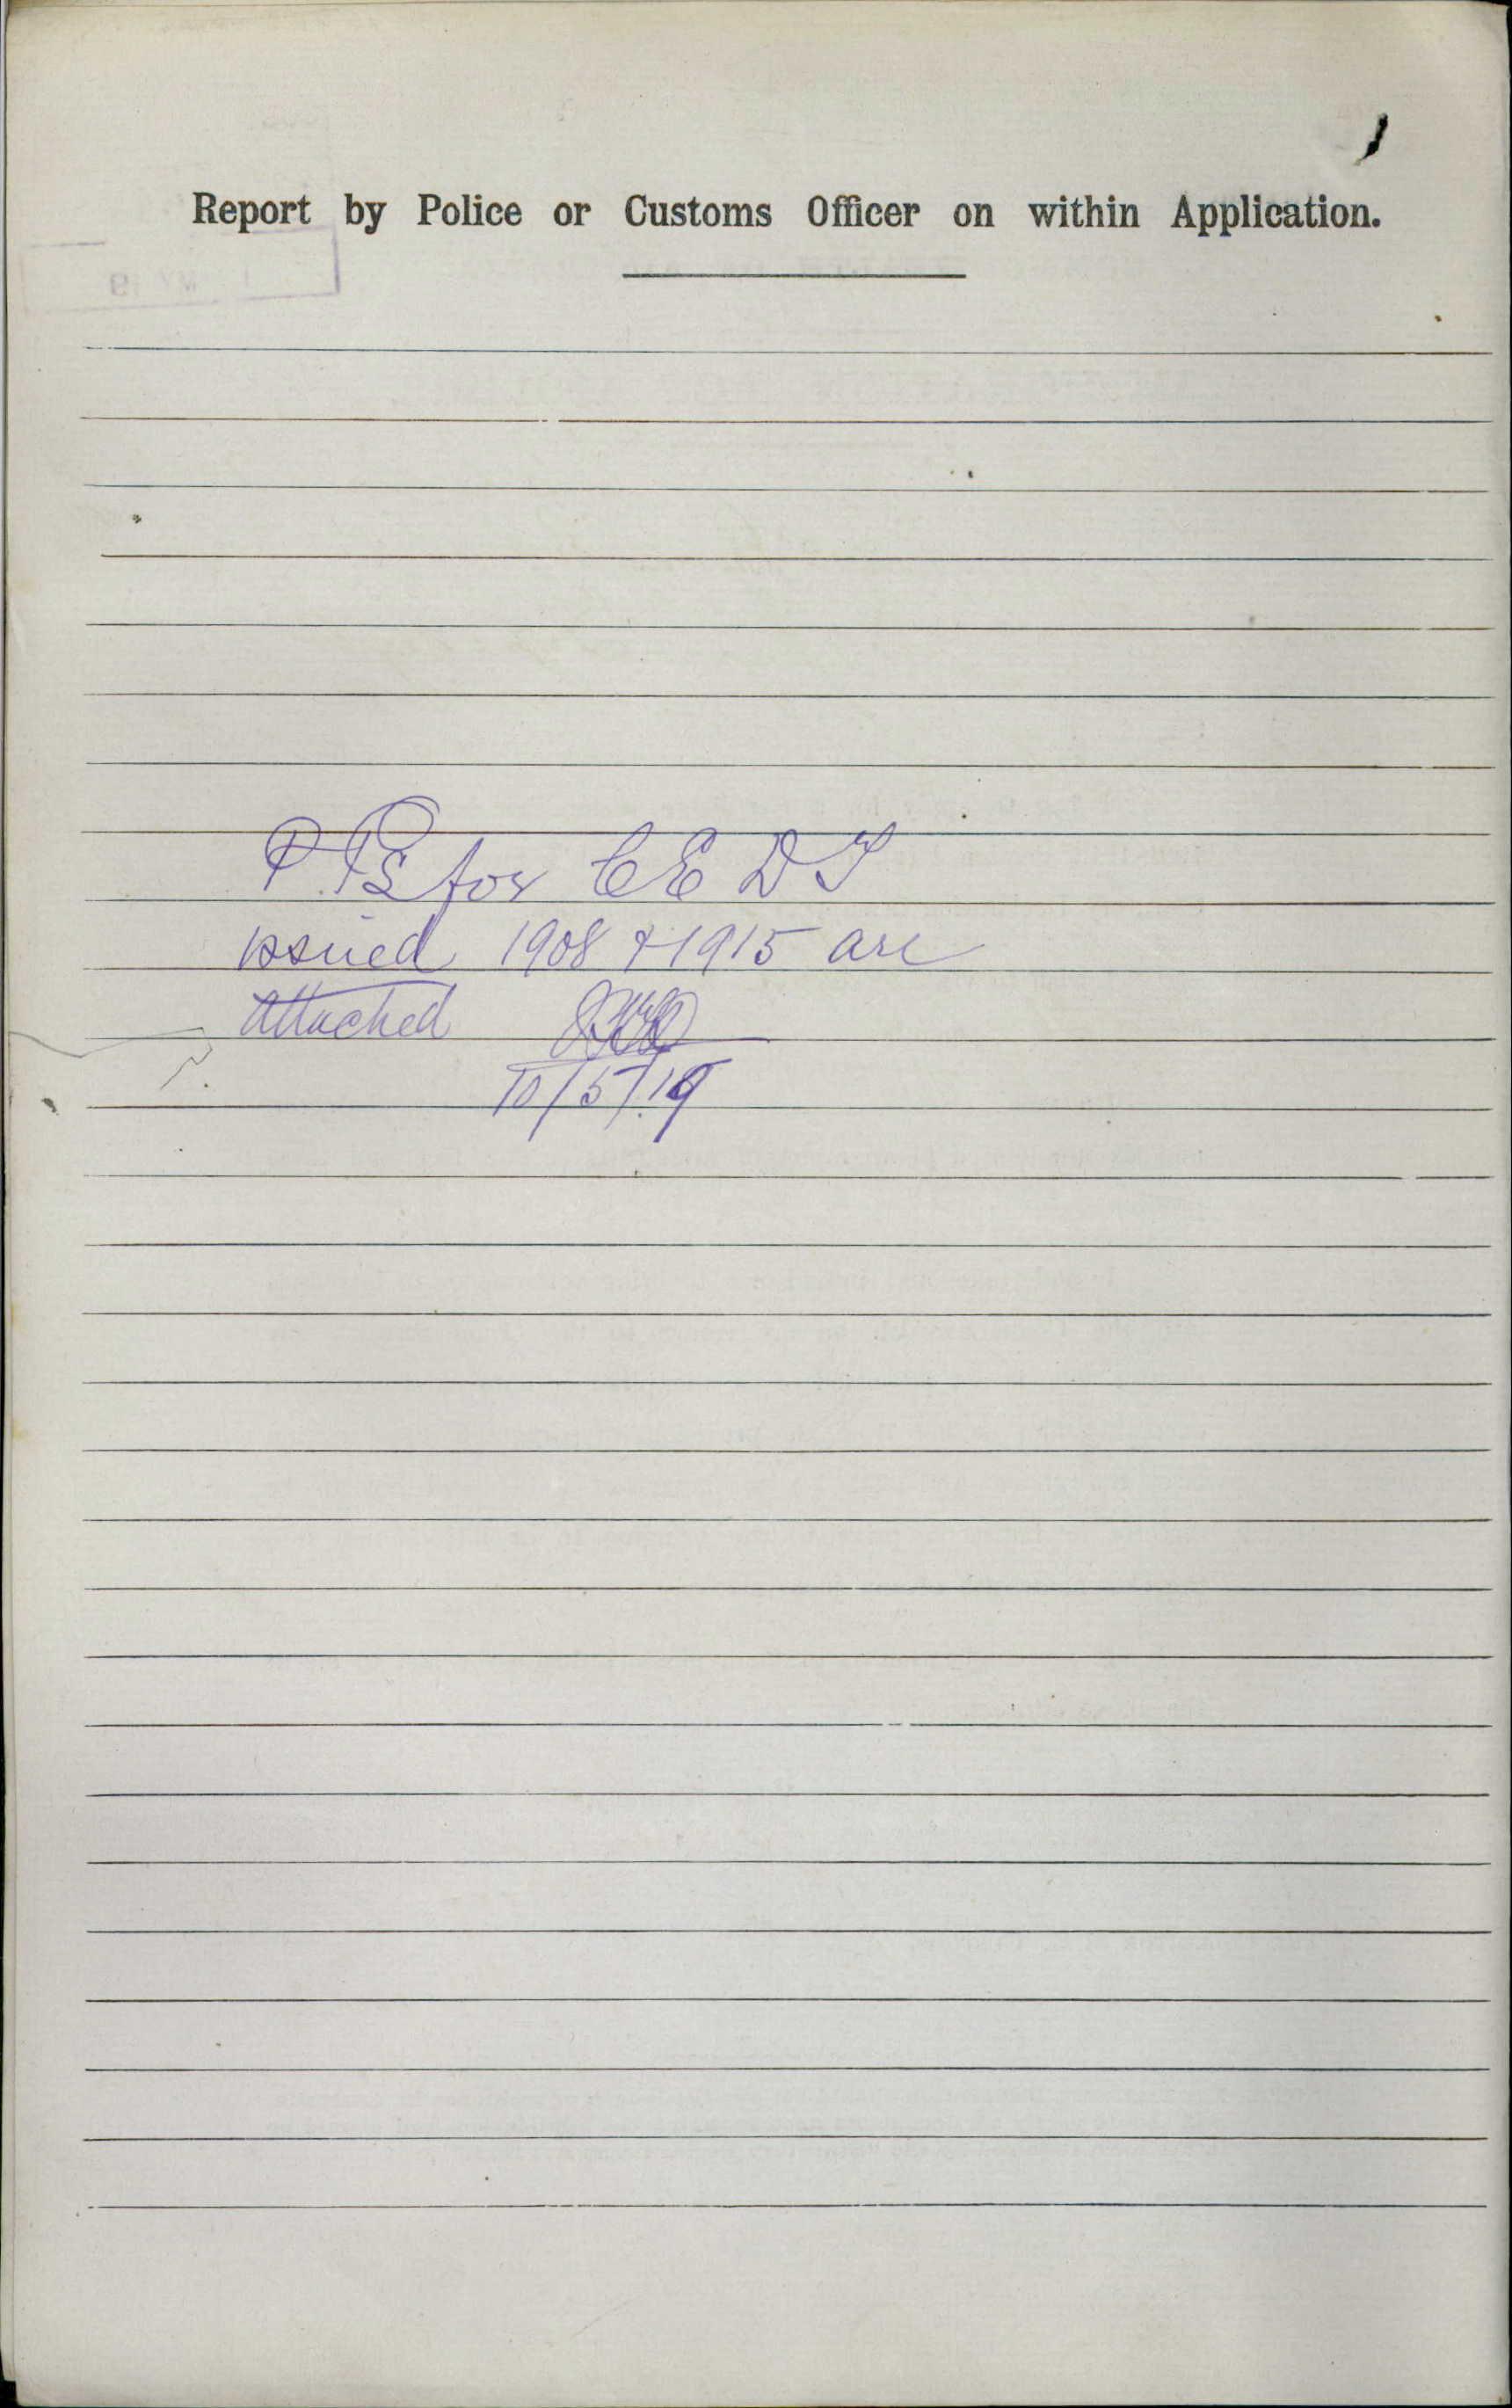 Report by Police or Customs Officer on within Application.
P.Ps for CEDT
issued 1908 & 1915 are
attached
10/5/19